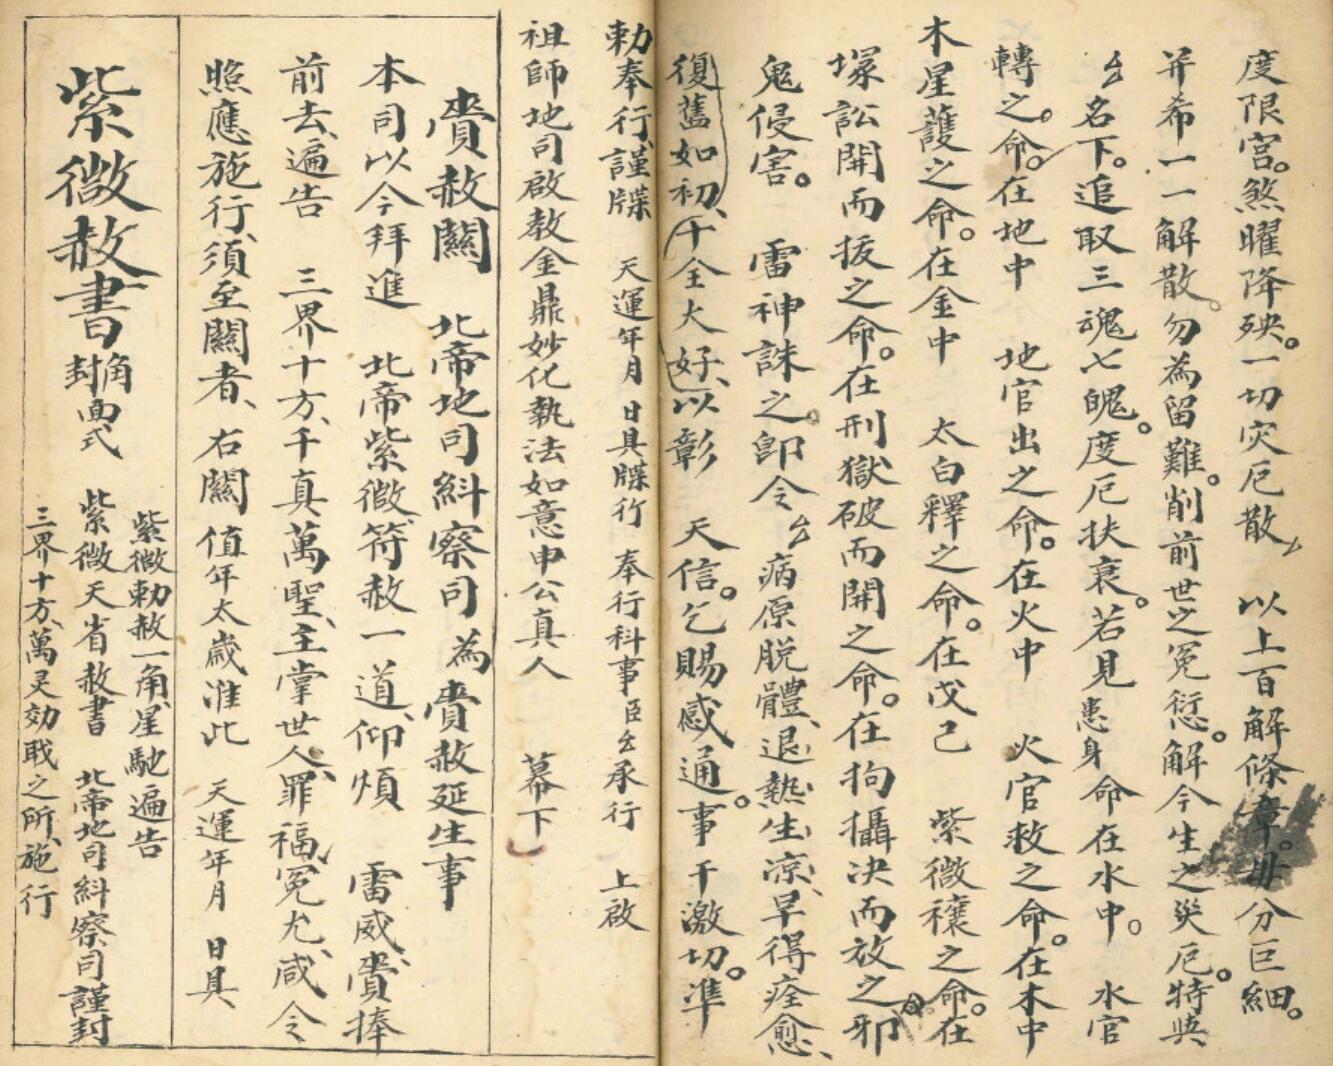 度限宮。煞曜降殃。一切灾厄散厶 以上百解條章。毋分巨細。
并希一一解散。勿為留難。削前世之冤愆。解今生之災厄。特與
厶名下。追取三魂七魄。度厄扶衰。若見患身命在水中。 水官
轉之。命。在地中 地官出之。命。在火中 火官救之。命。在木中
木星護之。命。在金中 太白釋之。命。在戊己 紫微禳之。命。在
塚訟開而拔之。命。在刑獄破而開之。命。在拘攝決而放之。邪
鬼侵害。 雷神誅之。即令厶病原脱體、退熱生涼、早得痊愈、
復舊如初、十全大好、以彰 天信。乞賜感通。事干激切。準
勅奉行、謹牒 天運年月 日具牒行 奉行科事臣厶承行 上啟
祖師地司啟教金鼎妙化執法如意申公真人 幕下
賫赦關 北帝地司糾察司 為賫赦延生事
本司以今拜進 北帝紫微符赦一道、仰煩 雷威、賫捧
前去、遍告 三界十方、千真萬聖、主掌世人、罪福、冤尤、咸令
照應施行、須至關者、右關 值年太歲准此 天運年月 日具
紫微赦書 角封面式
紫微勅赦一角、星馳遍告
紫微天省赦書 北帝地司糾察司謹封
三界十方、萬灵効职之所、施行